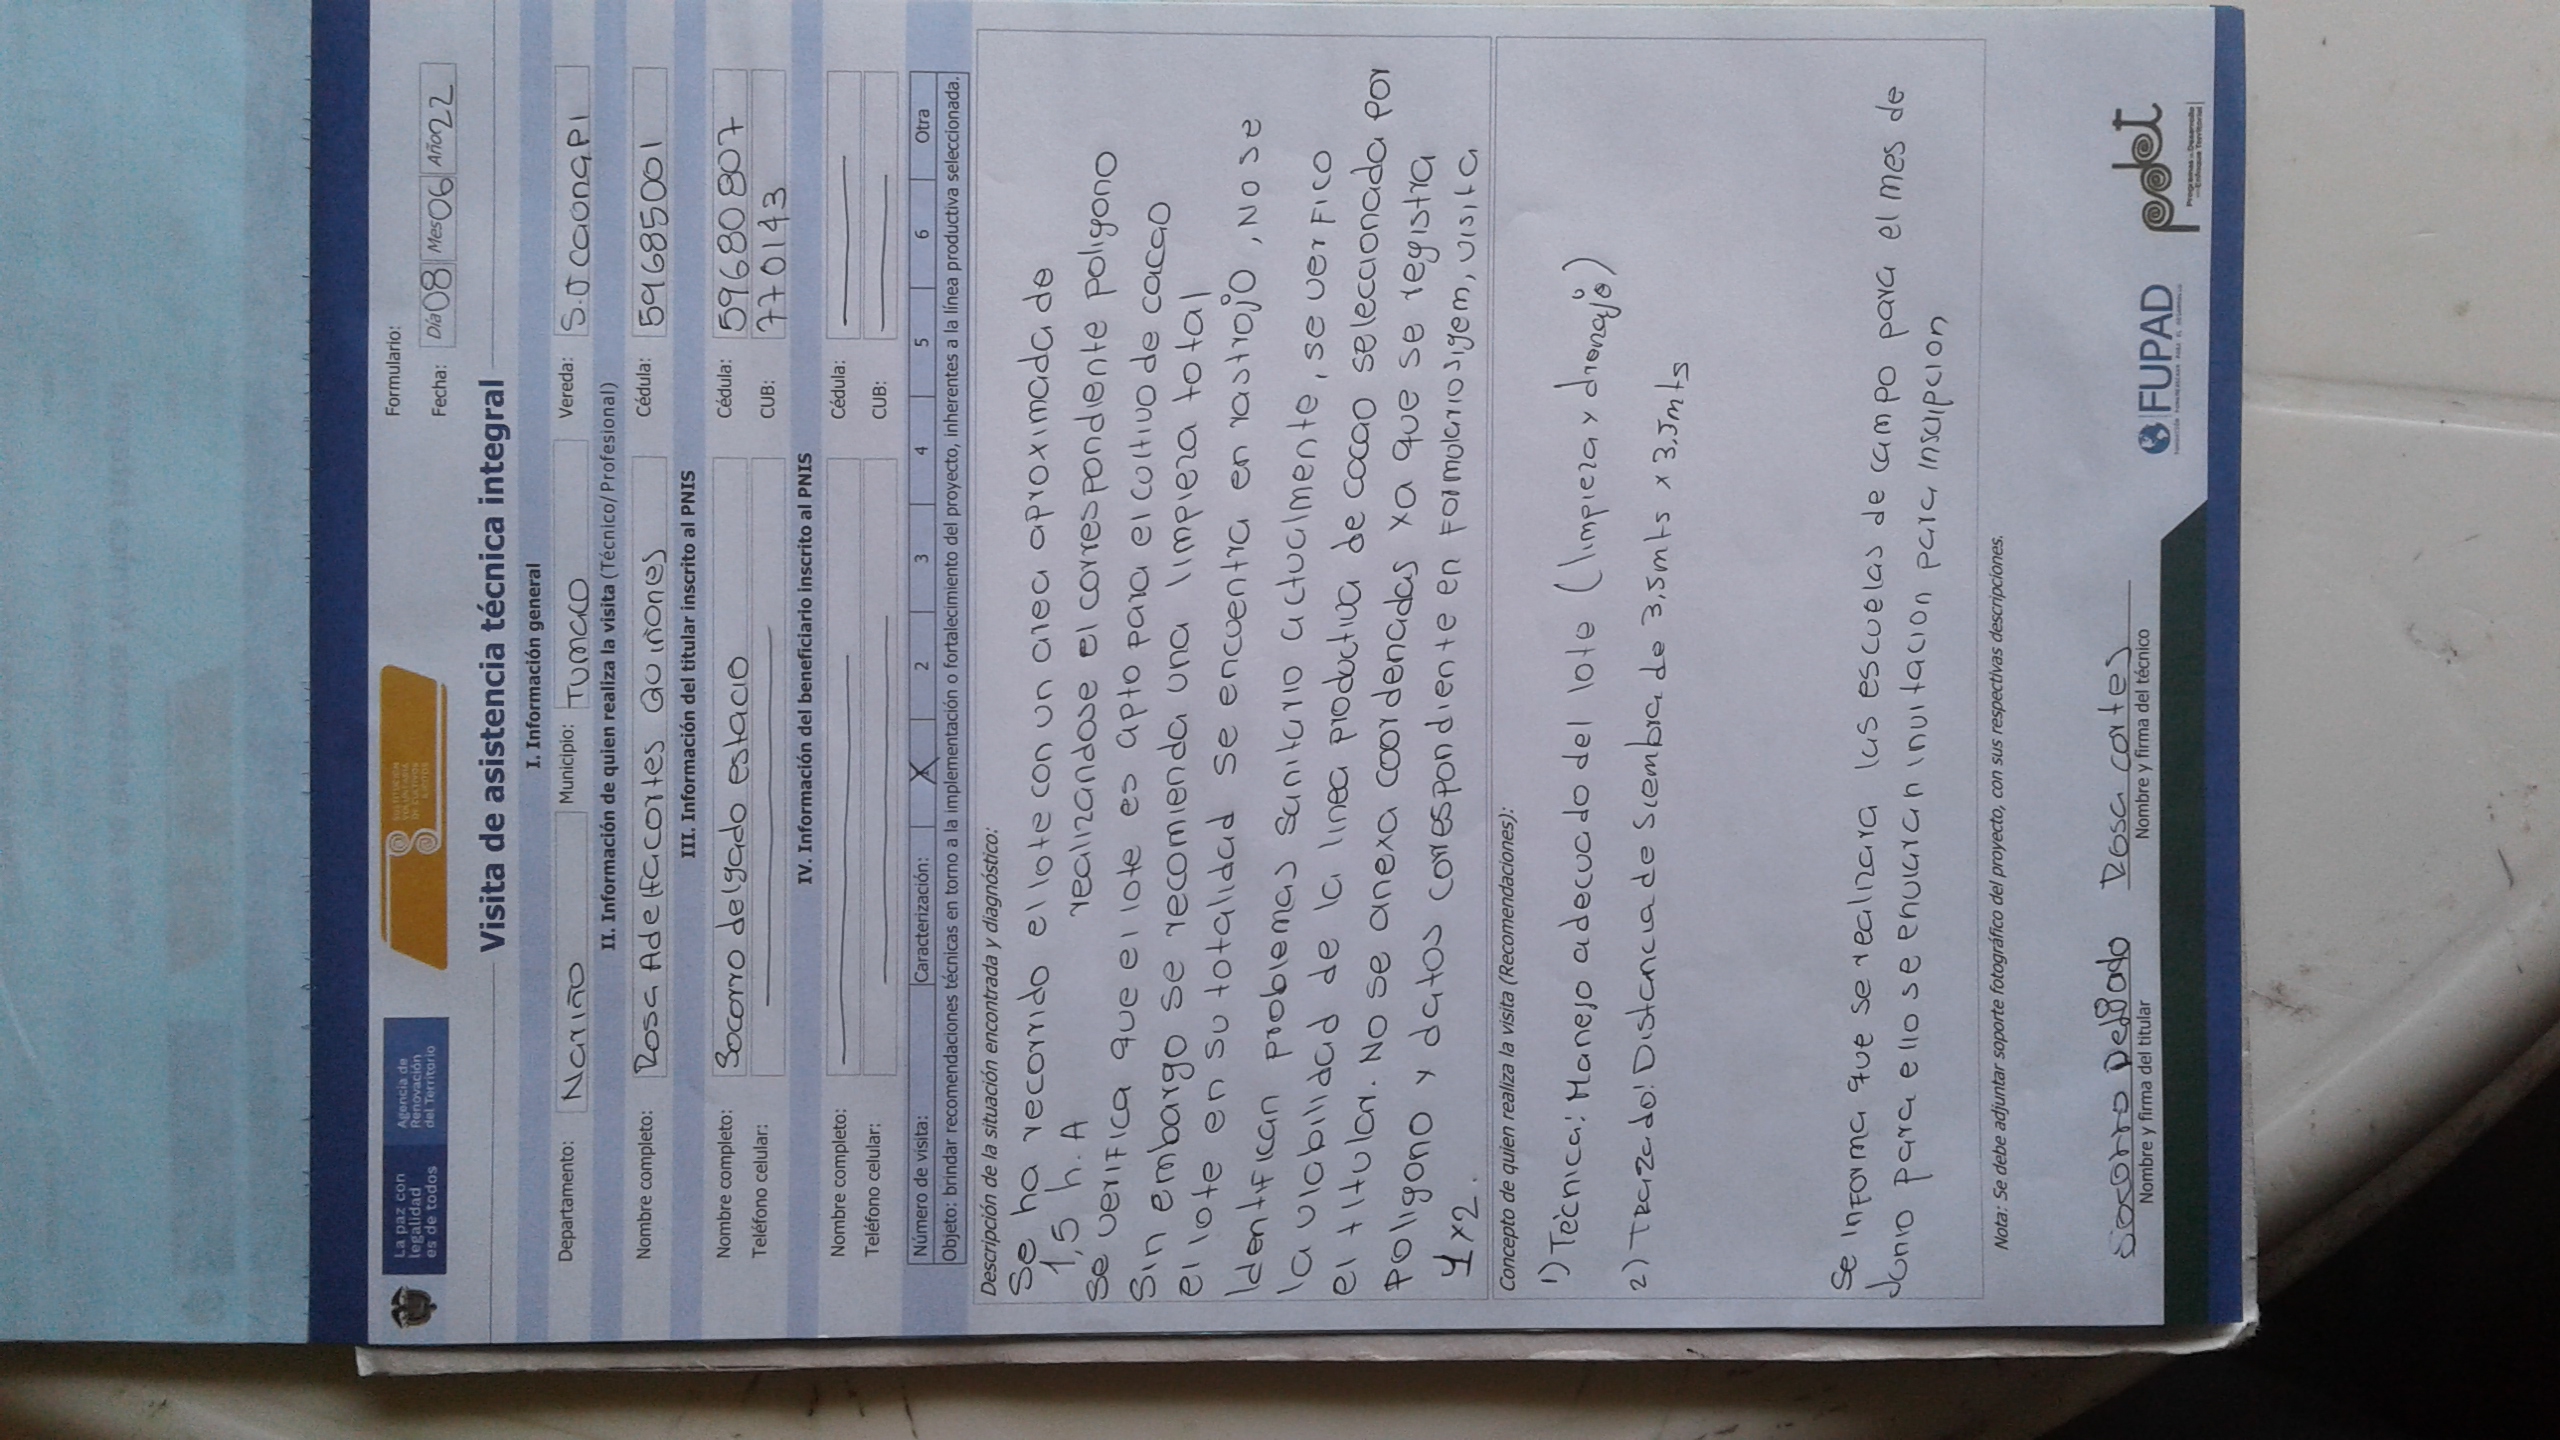 La paz con
legalidad
es de todos
Agencia de
Renovación
del Territorio
SUSTITUCIÓN
VOLUNTARIA
DE CULTIVOS
ILÍCITOS
Formulario:
Fecha: Día 08 Mes 06 Año 22
Visita de asistencia técnica integral
I. Información general
Departamento: Nariño Municipio: Tumaco Vereda: S.J caonapi
II. Información de quien realiza la visita (Técnico/Profesional)
Nombre completo: Rosa Adelfa cortes Quiñones Cédula: 59685001
III. Información del titular inscrito al PNIS
Nombre completo: Socorro delgado estacio Cédula: 59680807
Teléfono celular: CUB: 770143
IV. Información del beneficiario inscrito al PNIS
Nombre completo: Cédula:
Teléfono celular: CUB:
Número de visita: Caracterización: X 2 3 4 5 6 Otra
Objeto: brindar recomendaciones técnicas en torno a la implementación o fortalecimiento del proyecto, inherentes a la línea productiva seleccionada.
Descripción de la situación encontrada y diagnóstico:
Se ha recorrido el lote con un area aproximada de
1,5 h.A realizandose el correspondiente poligono
Se verifica que el lote es apto para el cultivo de cacao
Sin embargo se recomienda una limpieza total
el lote en su totalidad se encuentra en rastrojo, No se
Identifican problemas sanitario actualmente, se verFico
la viabilidad de la linea productiva de cacao seleccionada por
el titular. No se anexa coordenadas ya que se registra
Poligono y datos correspondiente en Formulario sigem, visita
1 y 2.
Concepto de quien realiza la visita (Recomendaciones):
1) Tecnica: Manejo adecuado del lote (limpieza y drenaje)
2) Trazado: Distancia de Siembra de 3,5mts x 3.5mts
Se informa que se realizara las escuelas de campo para el mes de
Junio para ello se enviaran invitacion para inscripcion
Nota: Se debe adjuntar soporte fotográfico del proyecto, con sus respectivas descripciones.
Socorro Delgado Rosa cortes
Nombre y firma del titular Nombre y firma del técnico
FUPAD
pdet
Programas de Desarrollo
con Enfoque Territorial